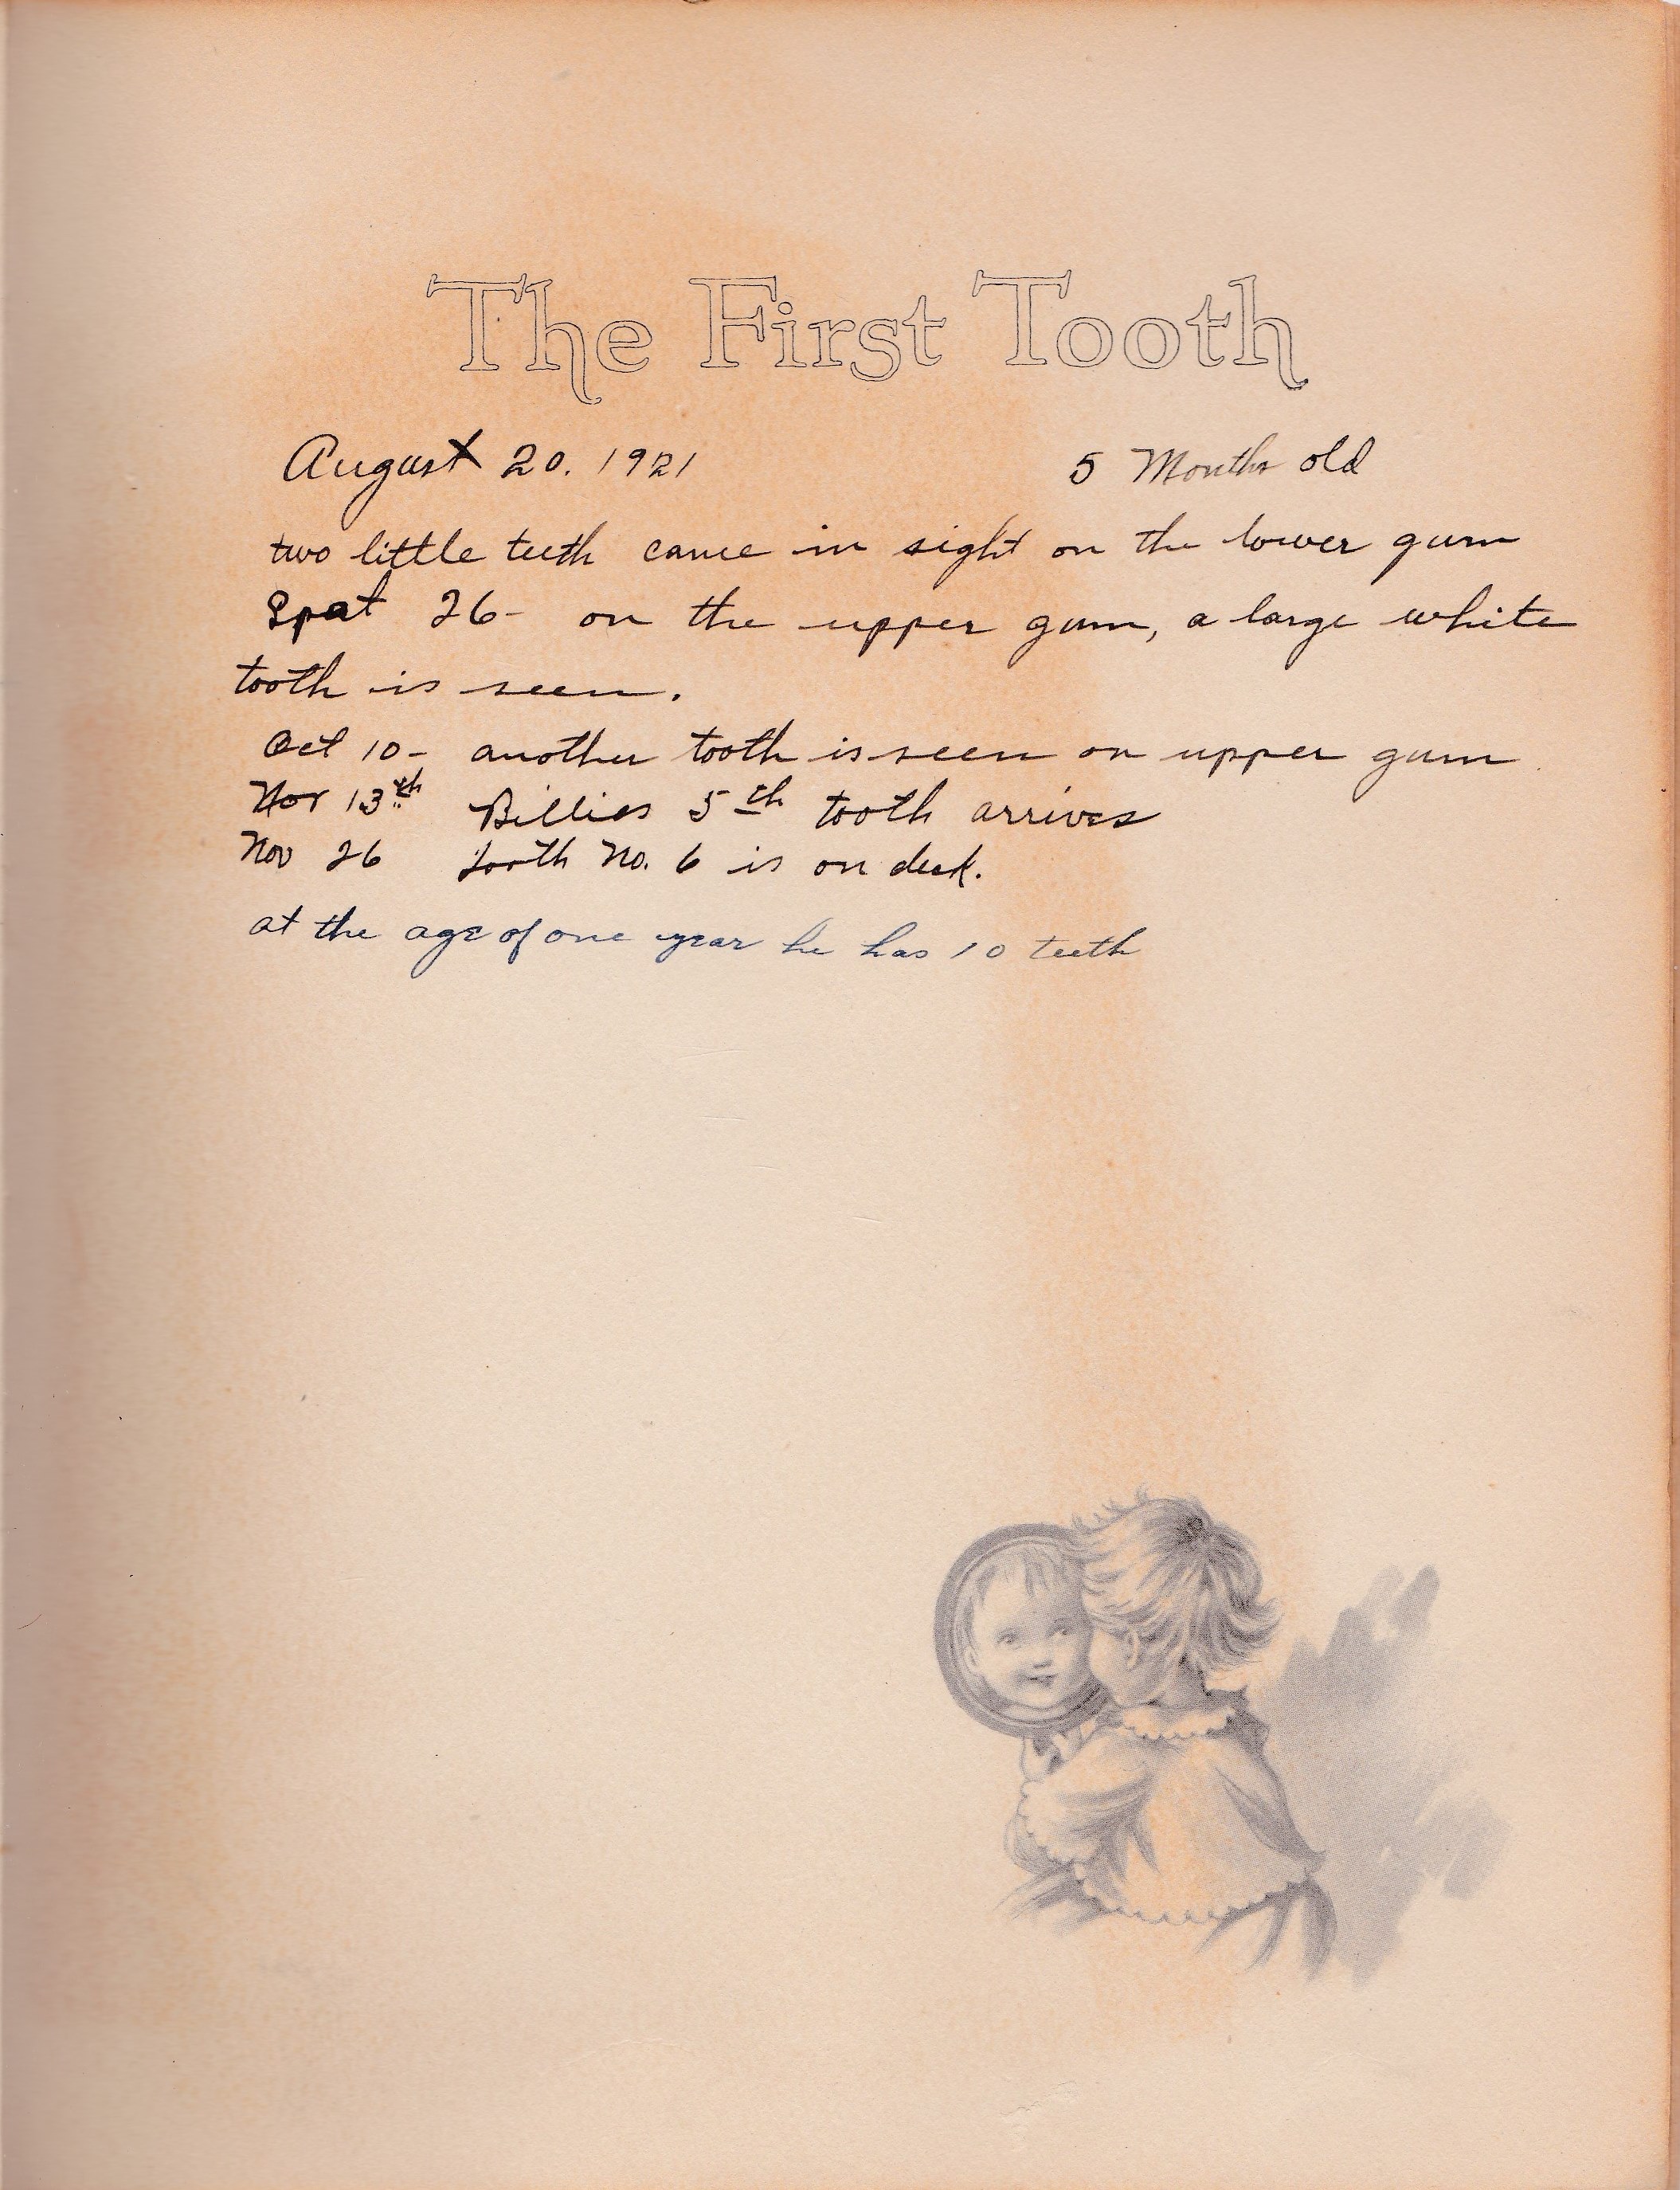 The First Tooth
August 20. 1921 5 Months old
two little teeth came in sight on the lower gum
Spat 26- on the upper gum, a large white
tooth is seen.
Oct 10- another tooth is seen on upper gum
Nov 13th Billies 5th tooth arrives
Nov 26 tooth No. 6 is on deck.
at the age of one year he has 10 teeth